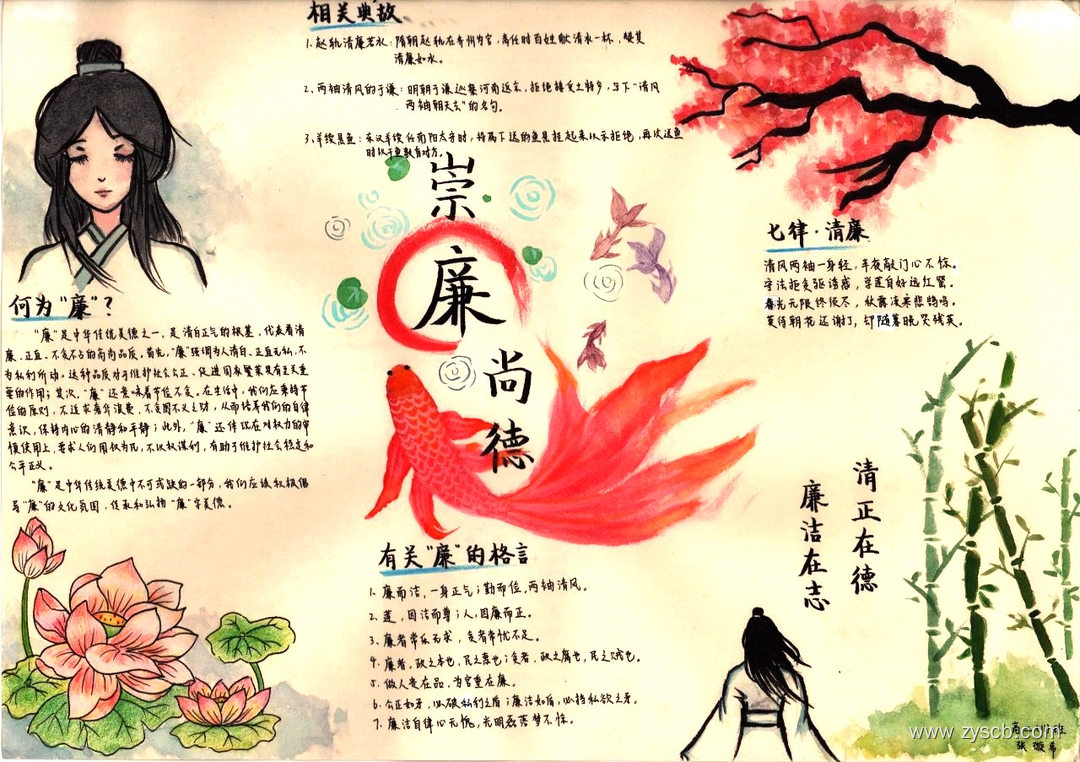 相关典故
1.赵轨清廉若水：隋朝赵轨在齐州为官，离任时百姓献清水一杯，赞其
清廉如水。
2.两袖清风的于谦：明朝于谦巡察河南返京，拒绝接受土特产，写下“清风
两袖朝天去”的名句。
3.羊续悬鱼：东汉羊续任南阳太守时，将属下送的鱼悬挂起来以示拒绝，再次送鱼
时以干鱼教育对方。
崇
廉
尚
德
七律·清廉
清风两袖一身轻，半夜敲门心不惊。
守法拒贪驱诱惑，掌莲自好远红罂。
春光无限终须尽，秋露凌来悲鹊鸣。
莫待朝花还谢打，却随暮晚哭残英。
何为“廉”？
“廉”是中华传统美德之一，是清白正气的根基，代表着清
廉、正直、不贪不占的高尚品质。首先，“廉”强调为人清白、正直无私，不
为私利所动。这种品质对于维护社会公正、促进国家繁荣具有至关重
要的作用；其次，“廉”还意味着节俭不贪。在生活中，我们应秉持节
俭的原则，不追求奢华浪费，不贪图不义之财，从而培养我们的自律
意识，保持内心的清静和平静；此外，“廉”还体现在对权力的审
慎使用上，要求人们用权为民，不以权谋利，有助于维护社会稳定和
公平正义。
“廉”是中华传统美德中不可或缺的一部分，我们应该积极倡
导“廉”的文化氛围，传承和弘扬“廉”字美德。
有关“廉”的格言
1.廉而洁，一身正气；勤而俭，两袖清风。
2.莲，因洁而尊；人，因廉而正。
3.廉者常乐无求，贪者常忧不足。
4.廉者，政之本也，民之惠也；贪者，政之腐也，民之贼也。
5.做人贵在品，为官重在廉。
6.公正如矛，必破私行之盾；廉洁如盾，必挡私欲之矛。
7.廉洁自律心无愧，光明磊落梦不惊。
清正在德
廉洁在志
班
张
www.zyscb.com